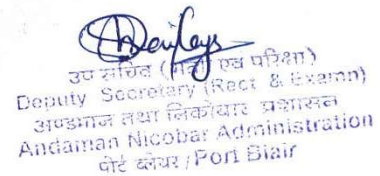 उप सचिव (भर्ती एवं परीक्षा)
Deputy Secretary (Rect & Examn)
अण्डमान तथा निकोबार प्रशासन
Andaman Nicobar Administration
पोर्ट ब्लेयर / Port Blair